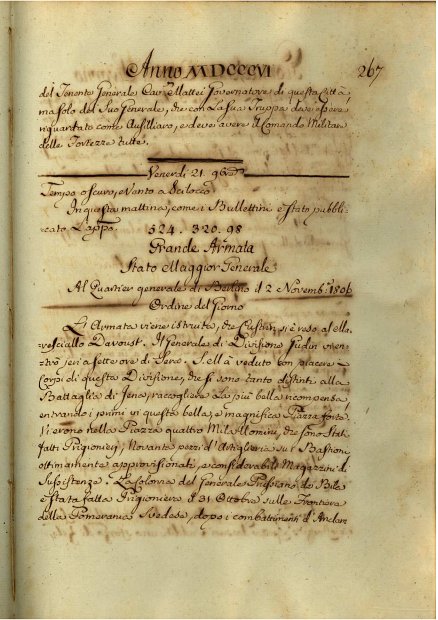 Anno MDCCCVI 267
del Tenente Generale Cav.r Mattei Governatore di questa Città
ma solo del Suo Generale, che con La Sua Truppa deve essere
riguardato come Ausiliario, e deve avere il Comando Militare
delle Fortezze tutte.
Venerdi 21. 9bre
Tempo oscuro, e Vento a Scilocco
In questa mattina, come i Bullettini è stato pubbli-
cato L'appo.
524. 320. 98
Grande Armata
Stato Maggior Generale
Al Quartier generale di Berlino il 2 Novemb.e 1806
Ordine del Giorno
L'Armata viene istruita, che Custrin si è reso al Ma-
resciallo Davoust. Il Generale di Divisione Gudin vi en-
trò jeri a sette ore di sera. S. M. à veduto con piacere i
Corpi di questa Divisione, che si sono tanto distinti alla
Battaglia di Jena, raccogliere La più bella ricompensa
entrando i primi in questa bella, e magnifica Piazza forte.
Vi erono nella Piazza quattro Mila Uomini, che sono Stati
fatti Prigionieri, Novanta pezzi d'Artiglieria su i Bastioni
ottimamente approvisionati, e considerabili Magazzini di
Sussistenze. La Colonna del Generale Prussiano de Bila
è stata fatta Prigioniera il 31 Ottobre sulle Frontiere
della Pomerania Svedese, dopo i combattimenti d'Anclam